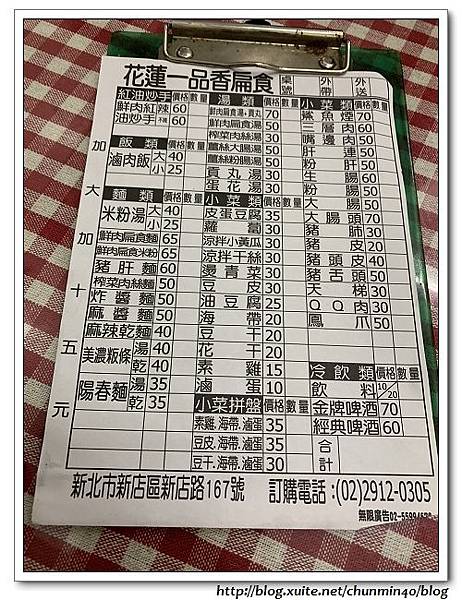 花蓮一品香扁食 桌號 外帶 外送
紅油炒手 價格 數量
鮮肉紅油炒手 辣 60
不辣 60
飯類 價格 數量
滷肉飯 大 40
小 25
麵類 價格 數量
米粉湯 大 40
小 25
鮮肉扁食麵 65
鮮肉扁食米粉 65
豬肝麵 60
榨菜肉絲麵 50
炸醬麵 50
麻醬麵 50
麻辣乾麵 40
美濃粄條 湯 40
乾 40
陽春麵 湯 35
乾 35
加大加十五元
湯類 價格 數量
鮮肉扁食湯+貢丸 70
鮮肉扁食湯 50
榨菜肉絲湯 50
薑絲大腸湯 50
薑絲粉腸湯 50
貢丸湯 30
蛋花湯 30
小菜類 價格 數量
皮蛋豆腐 35
蘿蔔 30
涼拌小黃瓜 30
涼拌干絲 30
燙青菜 30
豆皮 30
油豆腐 25
海帶 20
豆干 20
花干 20
素雞 15
滷蛋 10
小菜拼盤 價格 數量
素雞.海帶.滷蛋 35
豆皮.海帶.滷蛋 35
豆干.海帶.滷蛋 30
小菜類 價格 數量
鯊魚煙 70
三層肉 60
嘴邊肉 50
肝連 50
粉肝 50
生腸 60
粉腸 50
大腸 50
大腸頭 70
豬肺 30
豬皮 20
豬頭皮 40
豬舌頭 50
天梯 30
QQ肉 30
鳳爪 50
冷飲類 價格 數量
飲料 10/20
金牌啤酒 70
經典啤酒 60
合計
新北市新店區新店路167號 訂購電話:(02)2912-0305
無限廣告
http://blog.xuite.net/chunmin40/blog